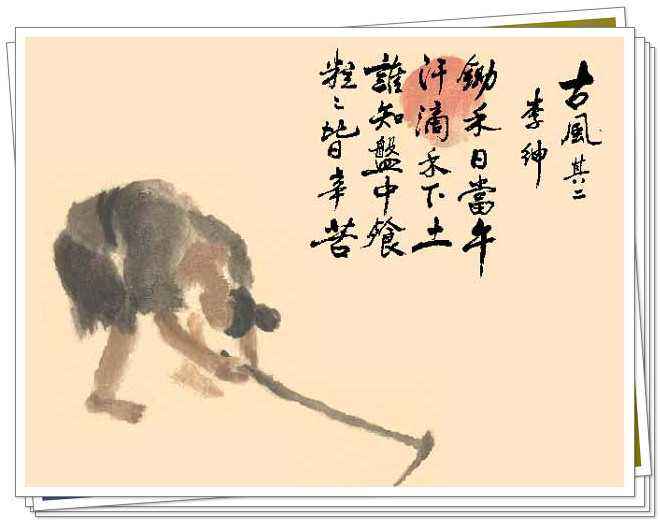 古風其二
李紳
鋤禾日當午
汗滴禾下土
誰知盤中飧
粒〻皆辛苦